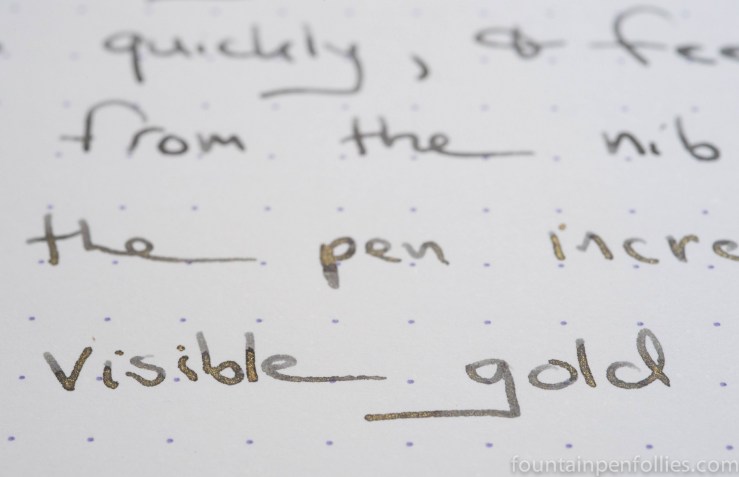 quickly, & fee
from the nib
the pen incre
visible gold
fountainpenfollies.com